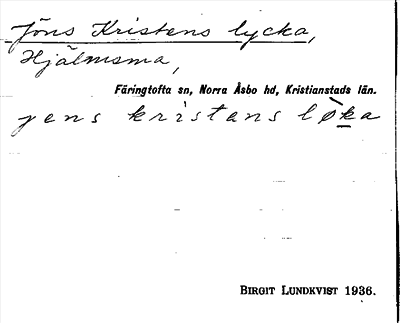 Jöns Kristens lycka,
Hjälmsma,
Färingtofta sn, Norra Åsbo hd, Kristianstads län.
jens kristans lø̀ka
BIRGIT LUNDKVIST 1936.